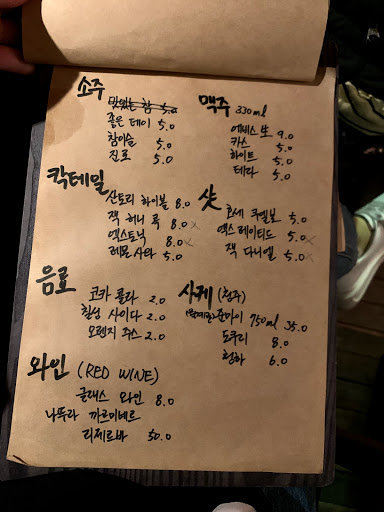 소주
맛있는 참 5.0
좋은 데이 5.0
참이슬 5.0
진로 5.0
맥주 330ml
에비스 生 9.0
카스 5.0
하이트 5.0
테라 5.0
칵테일
산토리 하이볼 8.0
잭 허니 콕 8.0 x
엑스토닉 8.0 x
레몬 사와 5.0
샷
호세 쿠엘보 5.0
엑스 레이티드 5.0 x
잭 다니엘 5.0 x
음료
코카 콜라 2.0
칠성 사이다 2.0
오렌지 쥬스 2.0
사케 (청주)
준마이 750ml 35.0
도쿠리 8.0
청하 6.0
와인 (RED WINE)
글래스 와인 8.0
나뚜라 까르미네르
리제르바 50.0